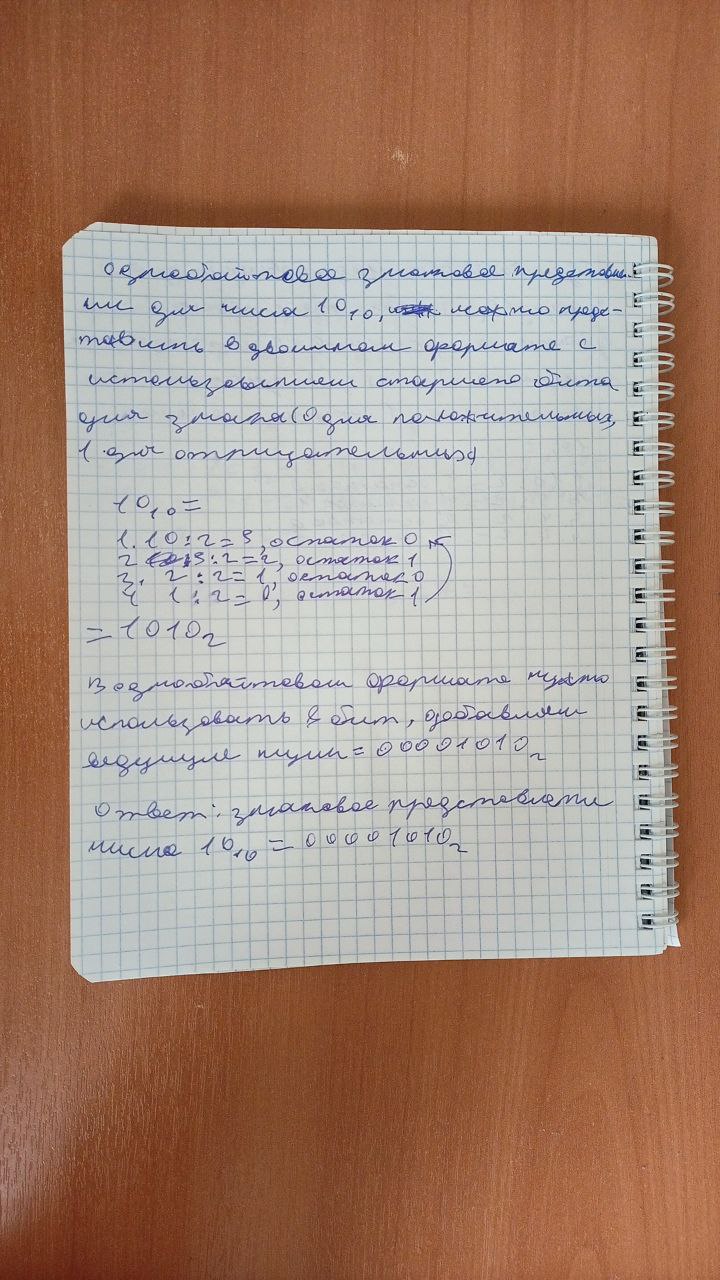 однобайтовое знаковое представле-
ние для числа 10₁₀, можно предс-
тавить в двоичном формате с
использованием старшего бита
для знака (0 для положительных,
1 для отрицательных)
10₁₀ =
1. 10 : 2 = 5, остаток 0
2 5 : 2 = 2, остаток 1
3. 2 : 2 = 1, остаток 0
4 1 : 2 = 0, остаток 1
= 1010₂
В однобайтовом формате нужно
использовать 8 бит, добавляем
ведущие нули = 00001010₂
Ответ: знаковое представление
числа 10₁₀ = 00001010₂